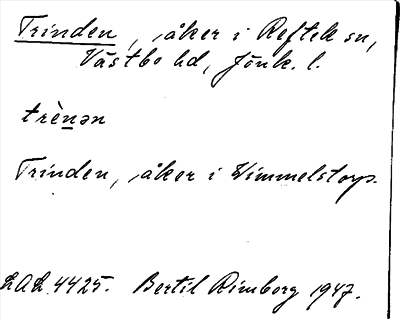 Trinden, åker i Reftele sn,
Västbo hd, Jönk. l.
trènən
Trinden, åker i Vimmelstorp.
LAL 4425. Bertil Rimborg 1947.